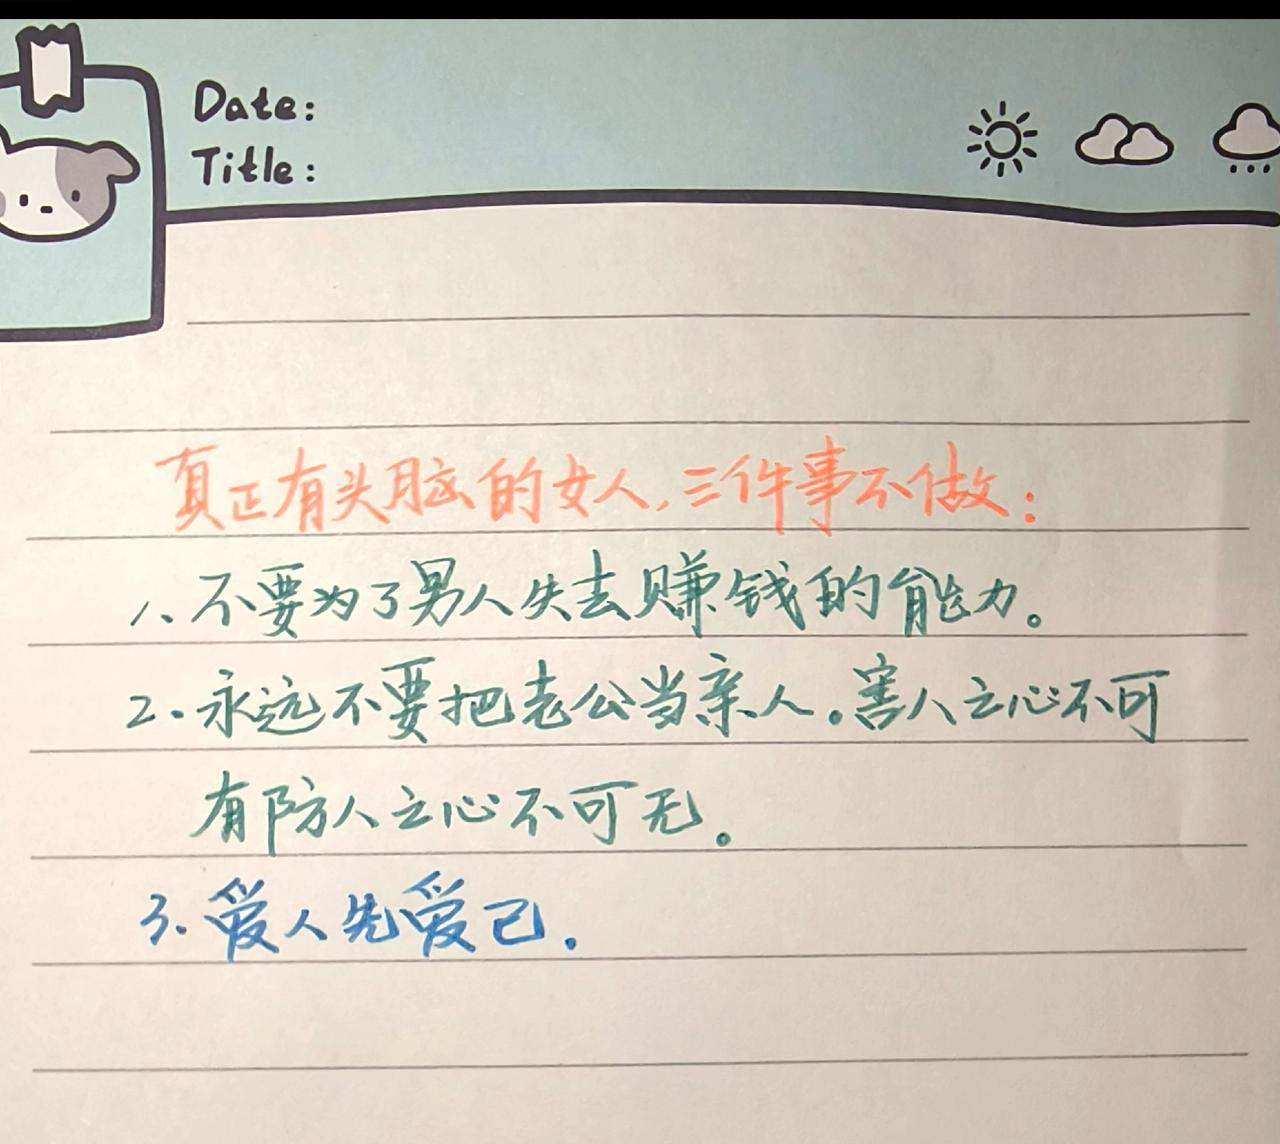 Date:
Title:
真正有头脑的女人,三件事不做:
1、不要为了男人失去赚钱的能力。
2.永远不要把老公当亲人。害人之心不可
有防人之心不可无。
3.爱人先爱己.